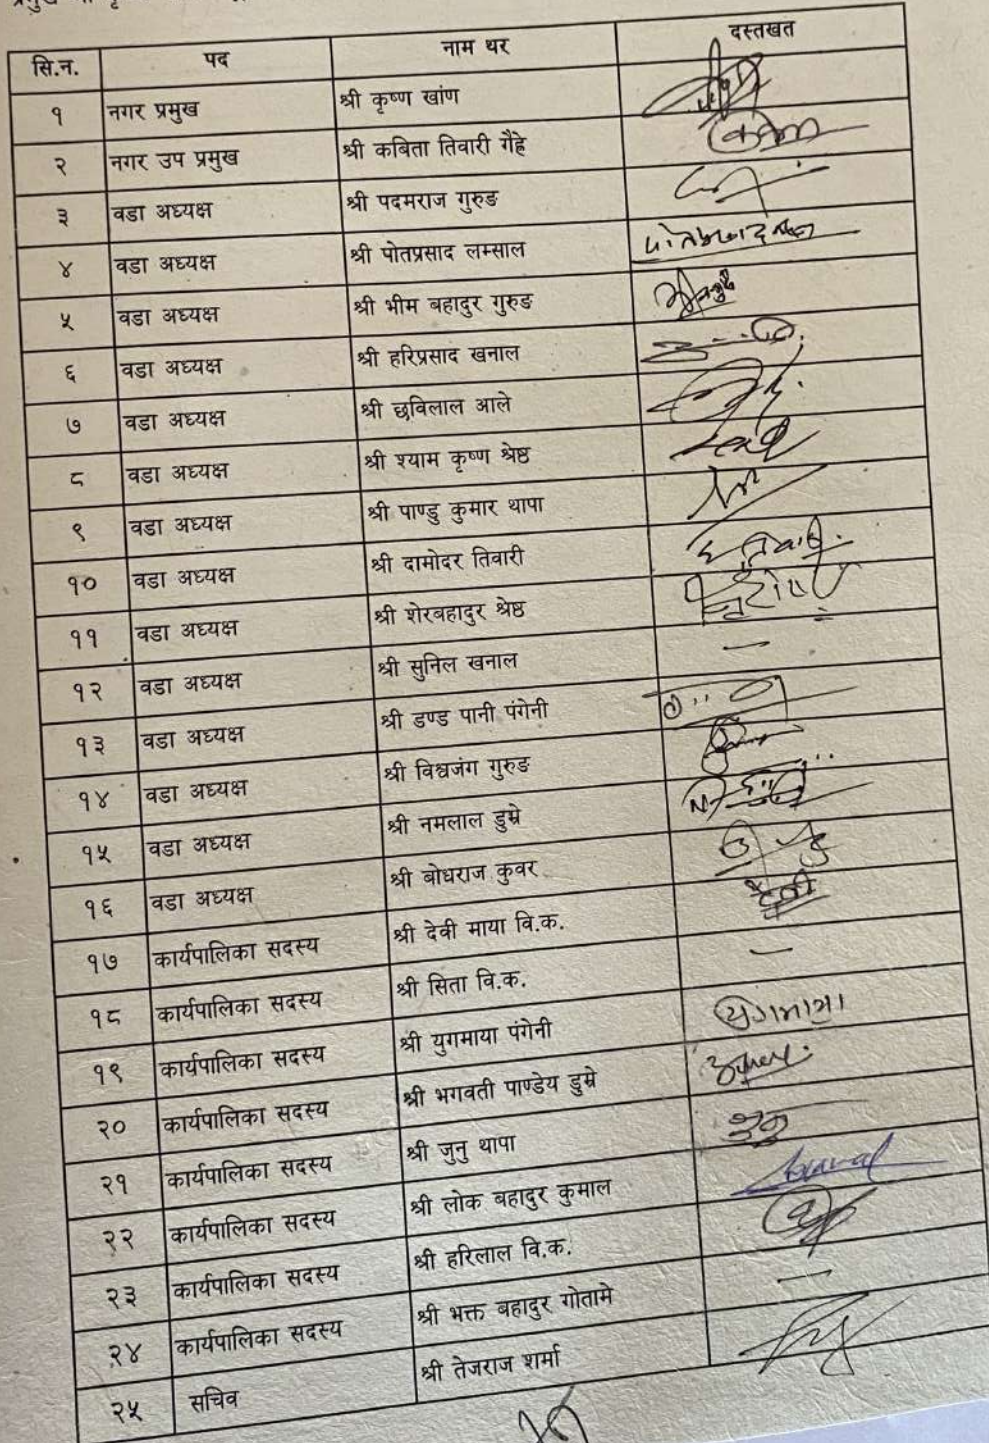 सि.न. पद नाम थर दस्तखत
१ नगर प्रमुख श्री कृष्ण खांण
२ नगर उप प्रमुख श्री कबिता तिवारी गैह्रे
३ वडा अध्यक्ष श्री पदमराज गुरुङ
४ वडा अध्यक्ष श्री पोतप्रसाद लम्साल
५ वडा अध्यक्ष श्री भीम बहादुर गुरुङ
६ वडा अध्यक्ष श्री हरिप्रसाद खनाल
७ वडा अध्यक्ष श्री छविलाल आले
८ वडा अध्यक्ष श्री श्याम कृष्ण श्रेष्ठ
९ वडा अध्यक्ष श्री पाण्डु कुमार थापा
१० वडा अध्यक्ष श्री दामोदर तिवारी
११ वडा अध्यक्ष श्री शेरबहादुर श्रेष्ठ
१२ वडा अध्यक्ष श्री सुनिल खनाल —
१३ वडा अध्यक्ष श्री डण्ड पानी पंगेनी
१४ वडा अध्यक्ष श्री विश्वजंग गुरुङ
१५ वडा अध्यक्ष श्री नमलाल डुम्रे
१६ वडा अध्यक्ष श्री बोधराज कुवर
१७ कार्यपालिका सदस्य श्री देवी माया वि.क.
१८ कार्यपालिका सदस्य श्री सिता वि.क. —
१९ कार्यपालिका सदस्य श्री युगमाया पंगेनी युगमाया
२० कार्यपालिका सदस्य श्री भगवती पाण्डेय डुम्रे
२१ कार्यपालिका सदस्य श्री जुनु थापा
२२ कार्यपालिका सदस्य श्री लोक बहादुर कुमाल
२३ कार्यपालिका सदस्य श्री हरिलाल वि.क.
२४ कार्यपालिका सदस्य श्री भक्त बहादुर गोतामे —
२५ सचिव श्री तेजराज शर्मा